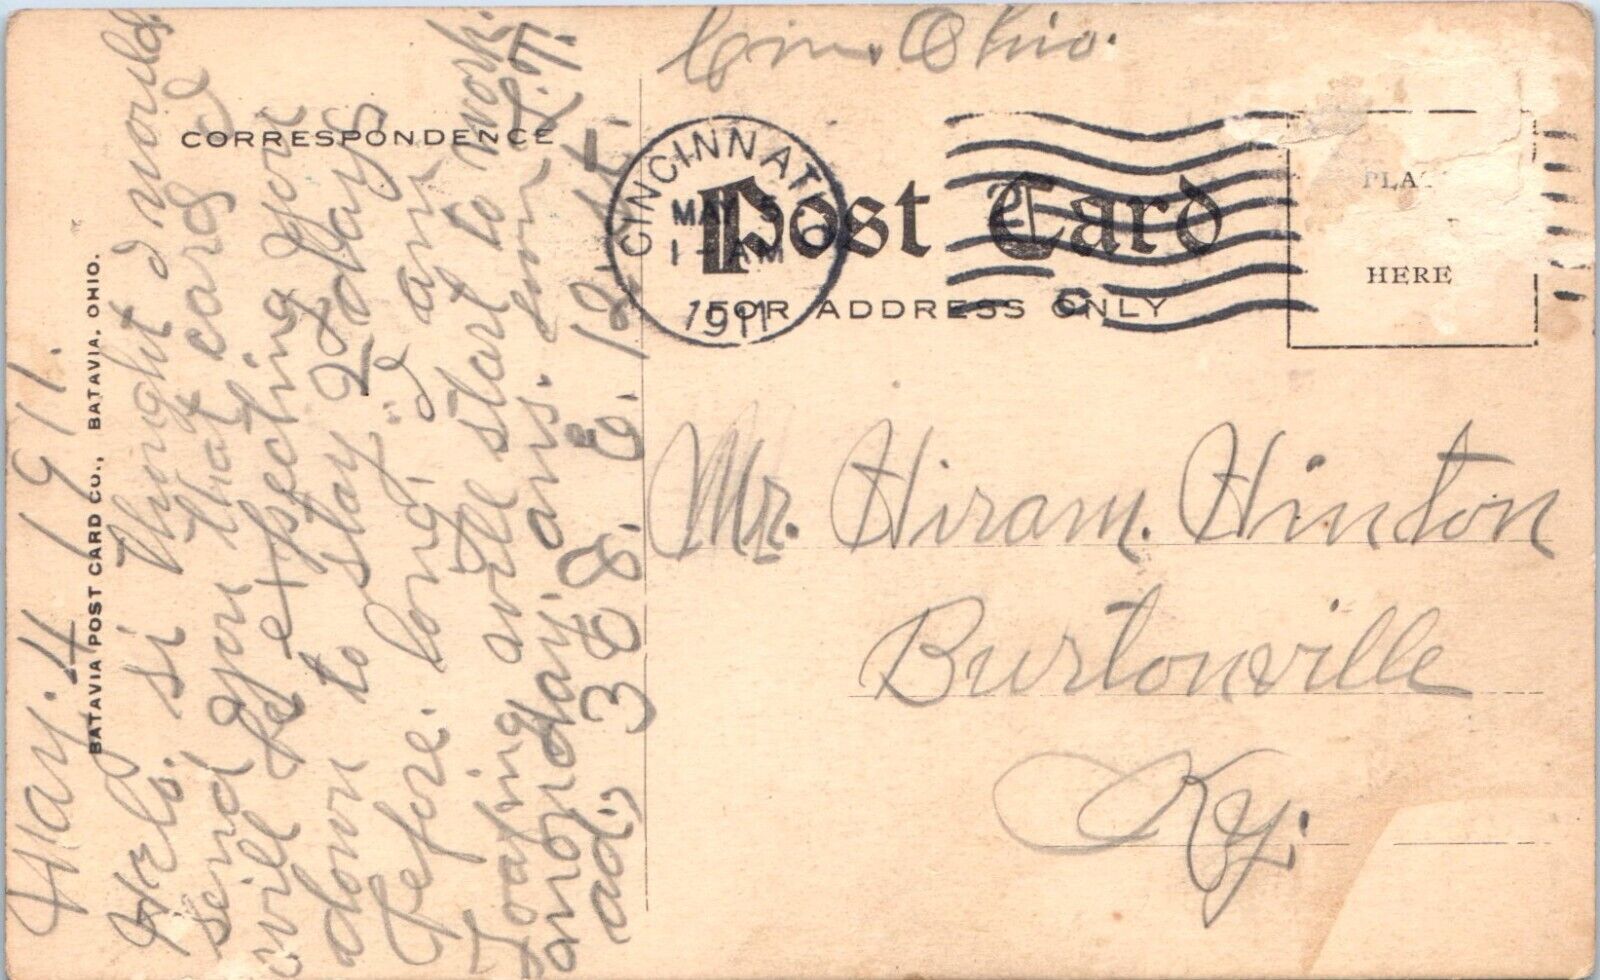 Cin. Ohio.
CORRESPONDENCE
CINCINNATI, O.
MAY 5
1 - AM
1911
Post Card
FOR ADDRESS ONLY
PLA
HERE
Mr. Hiram. Hinton
Burtonville
Ky.
BATAVIA POST CARD CO., BATAVIA, OHIO.
May. 4 1911.
Helo. si thought I would
send you that card I
will be expecting you
down to stay 2 days
before. long," I am
loafing will start to work.
monday. ans. soon
ad., 368. E. 12 st.